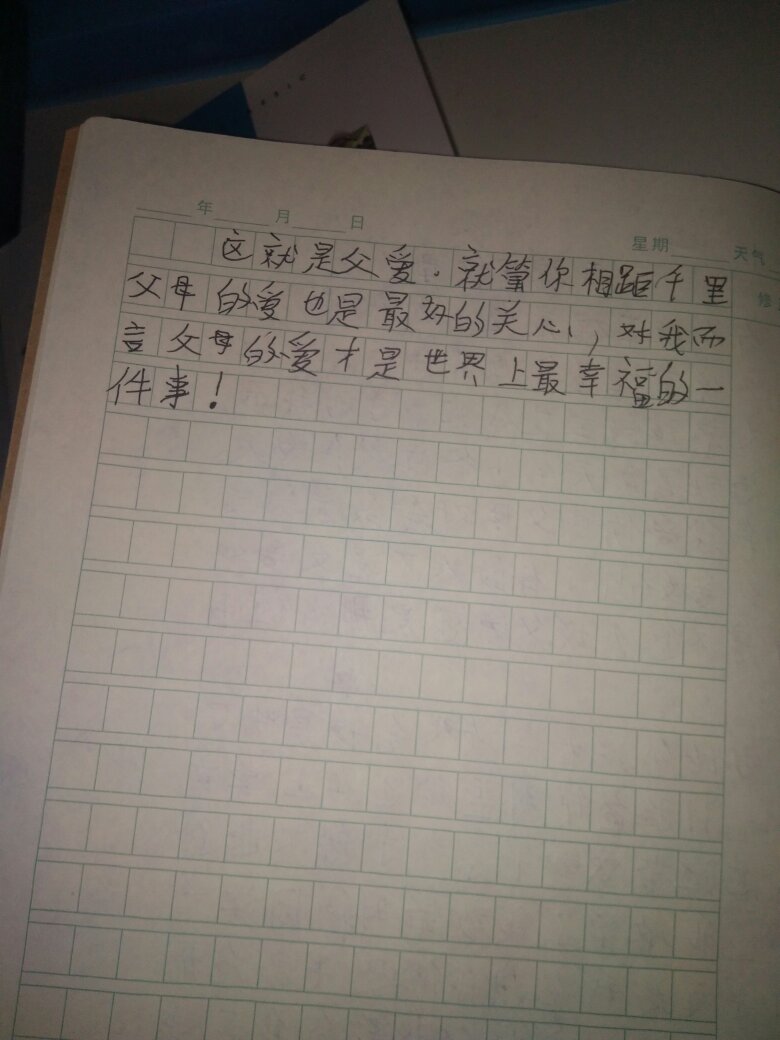 年 月 日 星期 天气
这就是父爱.就算你相距千里
父母的爱也是最好的关心,对我而
言父母的爱才是世界上最幸福的一
件事!